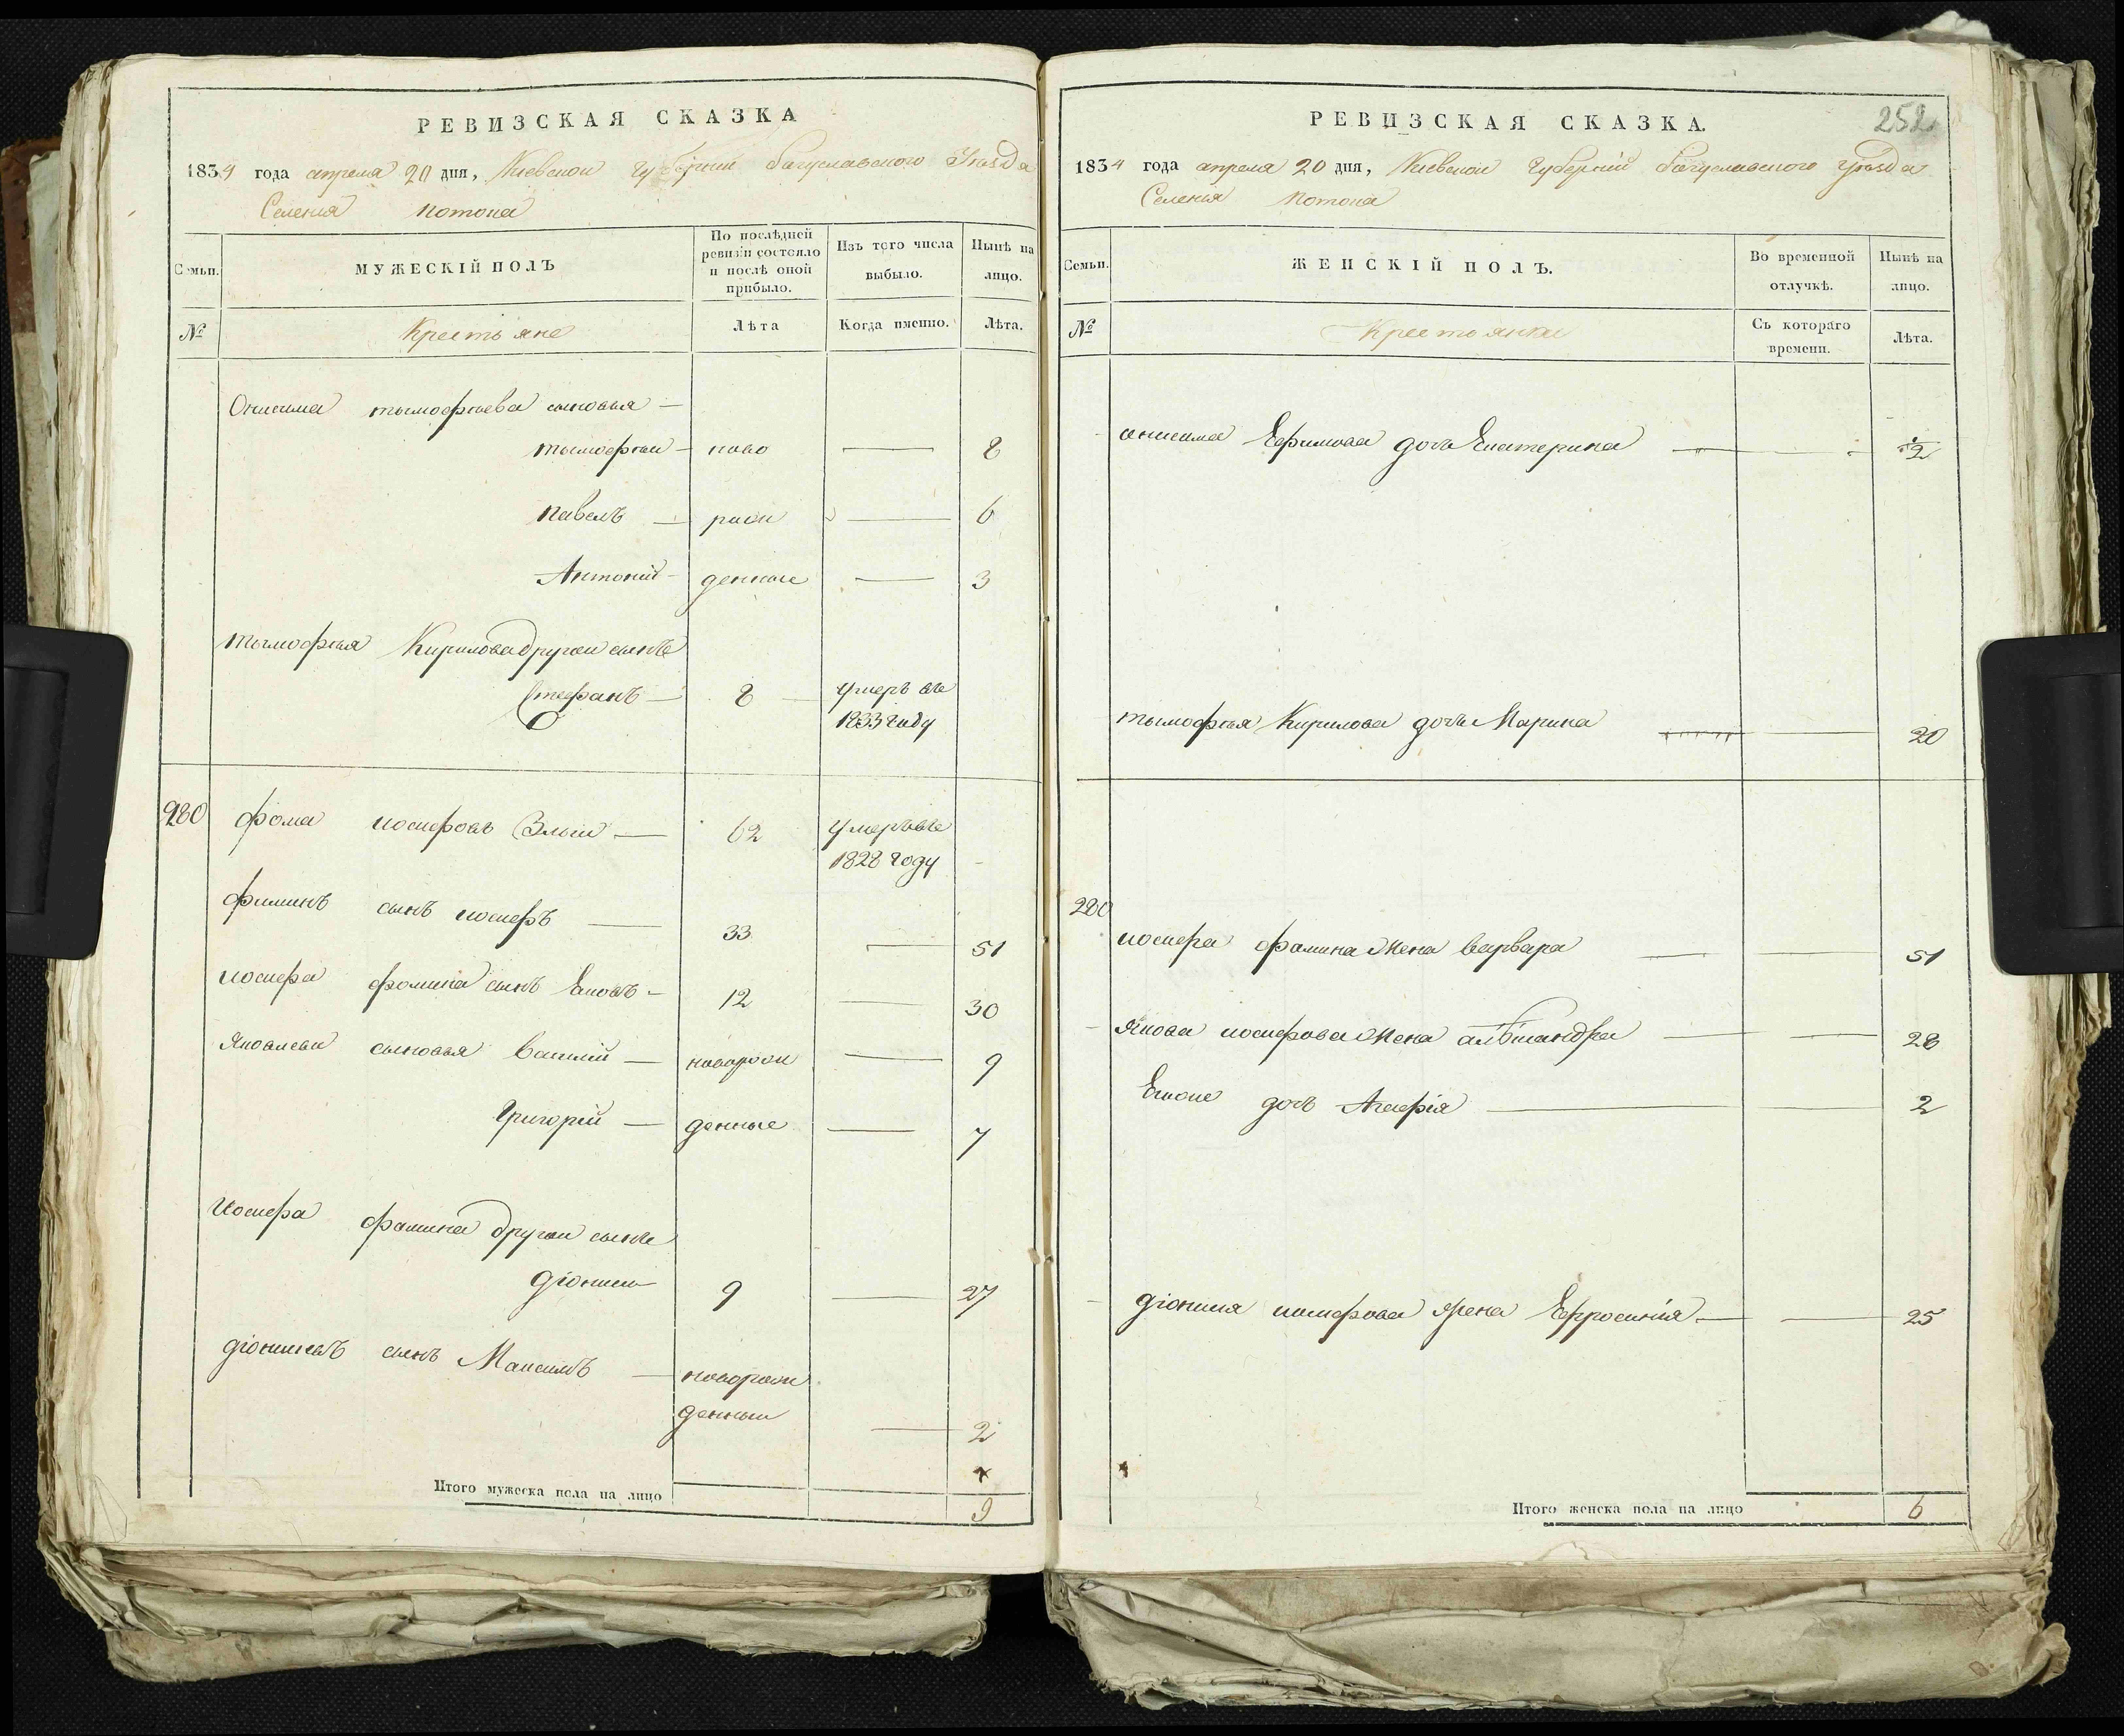 РЕВИЗСКАЯ СКАЗКА
1834 года апреля 20 дня, Киевской Губернии Богуславского Уезда
Селения Потока
Семьи.
МУЖЕСКІЙ ПОЛЪ
По послѣдней ревизіи состояло и послѣ оной прибыло.
Изъ того числа выбыло.
Нынѣ на лицо.
№
Крестьяне
Лѣта
Когда именно.
Лѣта.
Онисима тымофѣева сыновья —
тымофей — ново — 8
павелъ — рож — 6
Антоній — денные — 3
тымофѣя Кирилова другои сынъ
Стефанъ — 8 умеръ въ
1833 году
280 фома иосифовъ Злыи — 62 умеръ въ
1828 году
фоминъ сынъ иосифъ — 33 — 51
иосифа фомина сынъ Яковъ — 12 — 30
Яковлевы сыновья Василій — новорож — 9
Григорій — денные — 7
Иосифа фомина другои сынъ
діонисіи 9 — 27
діонисіевъ сынъ Максимъ — новорож
денныи — 2
Итого мужеска пола на лицо 9
РЕВИЗСКАЯ СКАЗКА.
252
1834 года апреля 20 дня, Киевской Губерніи Богуславского Уезда
Селения Потока
Семьи.
ЖЕНСКІЙ ПОЛЪ.
Во временной отлучкѣ.
Нынѣ на лицо.
№
Крестьянки
Съ котораго времени.
Лѣта.
онисима Ефимова дочь Екатерина — 2
тымофѣя Кирилова дочь Марина — 20
280
иосифа фомина жена варвара — 51
Якова иосифова жена александра — 28
дочь Агафія — 2
діонисія иосифова жена Ефросинія — 25
Итого женска пола на лицо 6